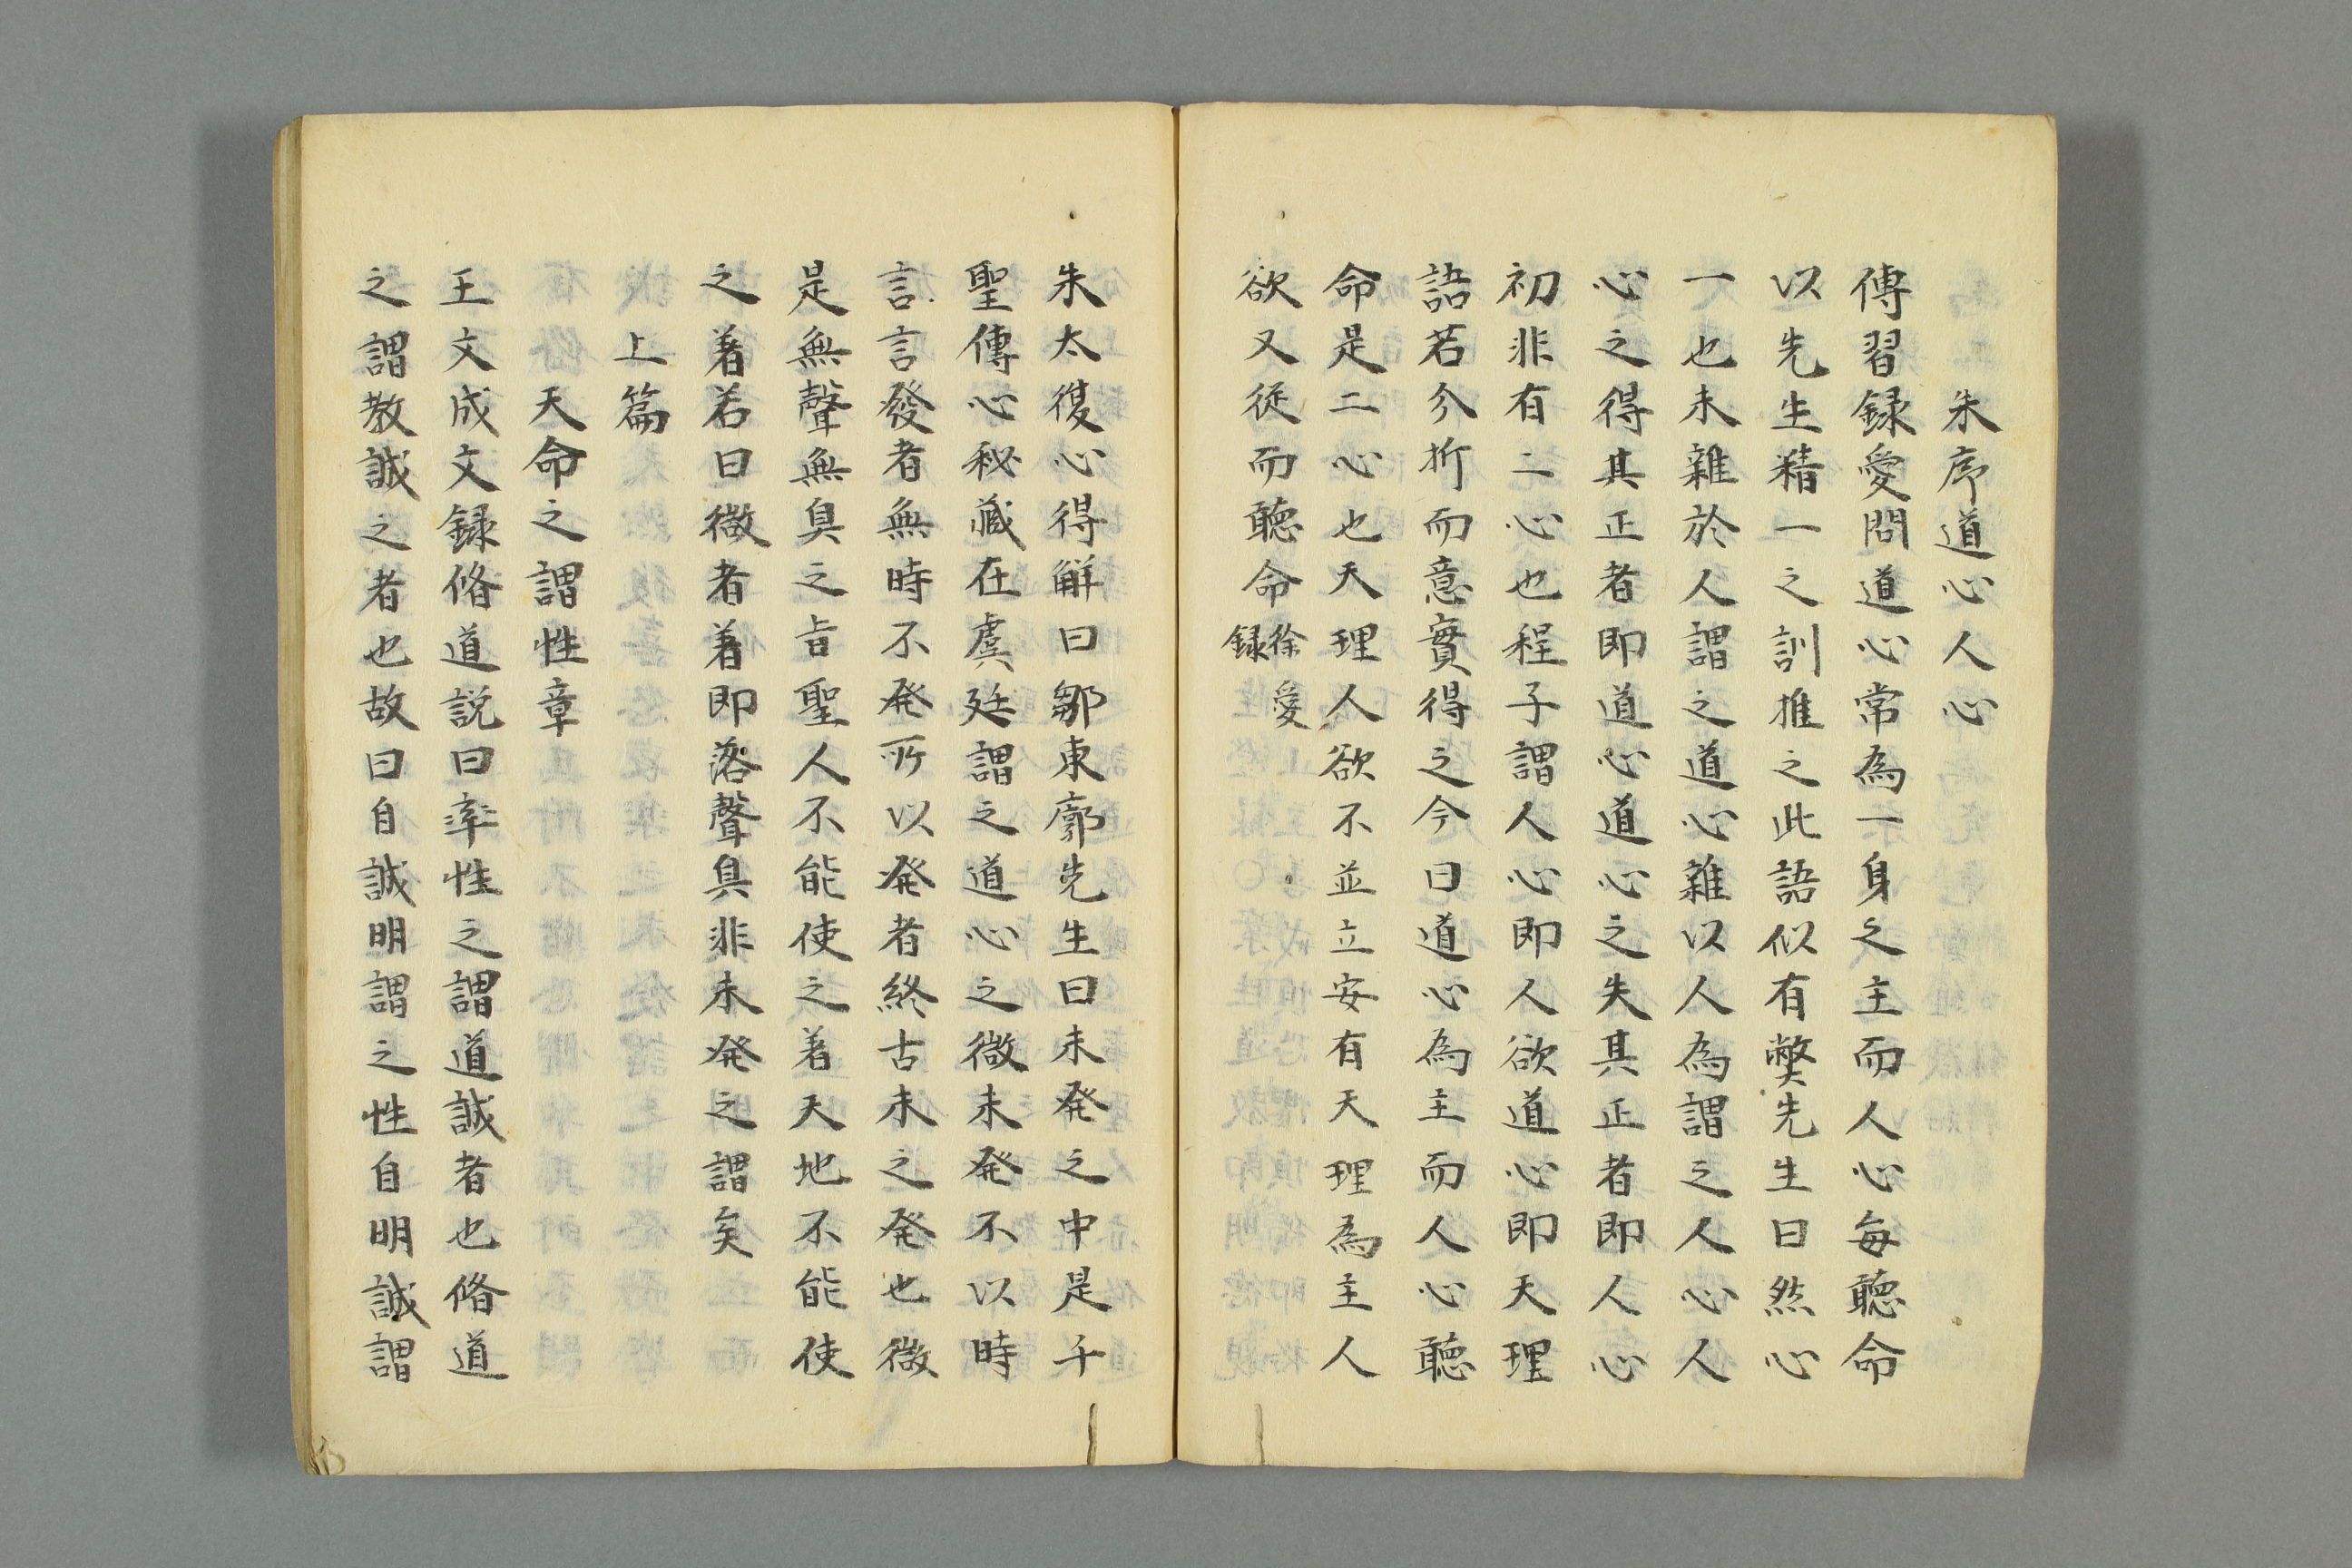 朱序道心人心
傳習録愛問道心常為一身之主而人心每聽命
以先生精一之訓推之此語似有弊先生曰然心
一也未雜於人謂之道心雜以人為謂之人心人
心之得其正者即道心道心之失其正者即人心
初非有二心也程子謂人心即人欲道心即天理
語若分析而意實得之今曰道心為主而人心聽
命是二心也天理人欲不並立安有天理為主人
欲又従而聽命徐愛
録
朱太復心得解曰鄒東廓先生曰未発之中是千
聖傳心秘蔵在虞廷謂之道心之微未発不以時
言言發者無時不発所以発者終古未之発也微
是無聲無臭之旨聖人不能使之著天地不能使
之著若曰微者著即落聲臭非未発之謂矣
上篇
天命之謂性章
王文成文録脩道説曰率性之謂道誠者也脩道
之謂教誠之者也故曰自誠明謂之性自明誠謂